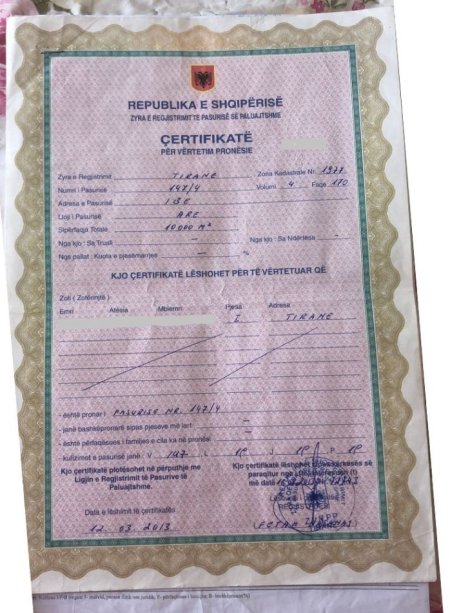 REPUBLIKA E SHQIPËRISË
ZYRA E REGJISTRIMIT TË PASURISË SË PALUAJTSHME
ÇERTIFIKATË
PËR VËRTETIM PRONËSIE
Zyra e Regjistrimit TIRANE Zona Kadastrale Nr. 1977
Numri i Pasurisë 147/4 Volumi 4 Faqe 170
Adresa e Pasurisë IBE
Lloji i Pasurisë ARE
Sipërfaqja Totale 10000 M²
Nga kjo : Sa Trualli - Nga kjo : Sa Ndërtesa -
Nga pallat : Kuota e pjesëmarrjes - %
KJO ÇERTIFIKATË LËSHOHET PËR TË VËRTETUAR QË
Zoti ( Zotërinjtë )
Emri Atësia Mbiemri Pjesa Adresa
I TIRANE
- është pronar i PASURISE NR. 147/4
- janë bashkëpronarë sipas pjesëve më lart
- është përfaqësues i familjes e cila ka në pronësi
- kufizimet e pasurisë janë: V
Kjo çertifikatë plotësohet në përputhje me
Ligjin e Regjistrimit të Pasurive të
Paluajtshme.
Kjo çertifikatë lëshohet
paraqitur nga
më datë
Data e lëshimit të çertifikatës
12.03.2013